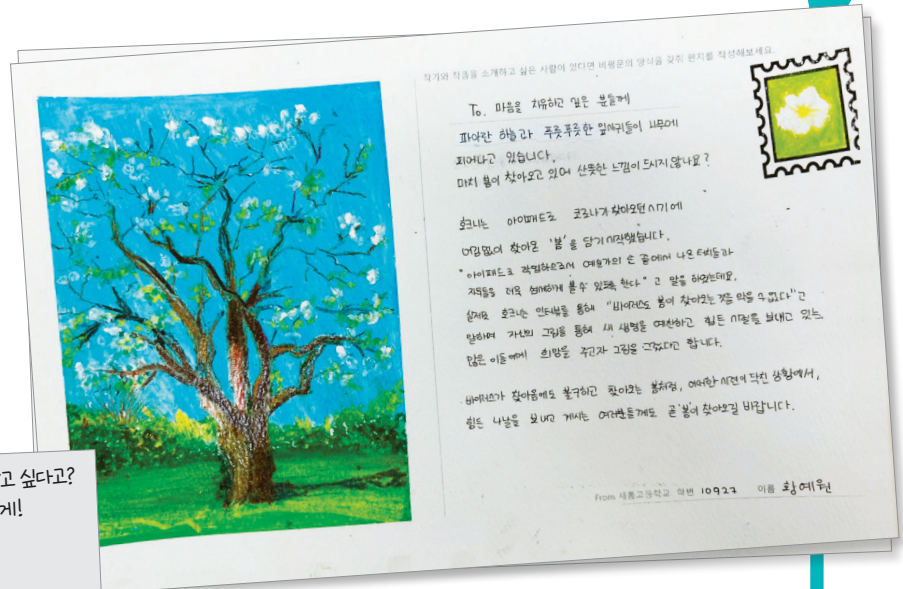 작가와 작품을 소개하고 싶은 사람이 있다면 비평문의 양식을 갖춰 편지를 작성해보세요.
To. 마음을 치유하고 싶은 분들께
파아란 하늘과 푸릇푸릇한 잎사귀들이 나무에
피어나고 있습니다.
마치 봄이 찾아오고 있어 산뜻한 느낌이 드시지 않나요?
호크니는 아이패드로 코로나가 찾아오던 시기에
어김없이 찾아온 '봄'을 담기 시작했습니다.
"아이패드로 작업함으로써 예술가의 손 끝에서 나온 터치들과
자국들을 더욱 섬세하게 볼 수 있도록 한다"고 말을 하였는데요.
실제로 호크니는 인터뷰를 통해 "바이러스도 봄이 찾아오는 것을 막을 수 없다"고
말하며 자신의 그림을 통해 새 생명을 예찬하고 힘든 시기를 보내고 있는
많은 이들에게 희망을 주고자 그림을 그렸다고 합니다.
바이러스가 찾아옴에도 불구하고 찾아오는 봄처럼, 어떠한 시련이 닥친 상황에서,
힘든 나날을 보내고 계시는 여러분들께도 곧 '봄'이 찾아오길 바랍니다.
From 세롬고등학교 학번 10927 이름 황예원
고 싶다고?
게!